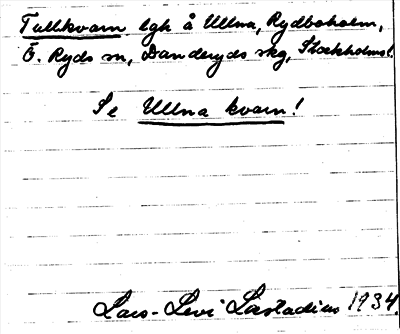 Tullkvarn lgh å Ullna, Rydboholm,
Ö. Ryds sn, Danderyds skg, Stockholms l.
Se Ullna kvarn!
Lars-Levi Læstadius 1934.